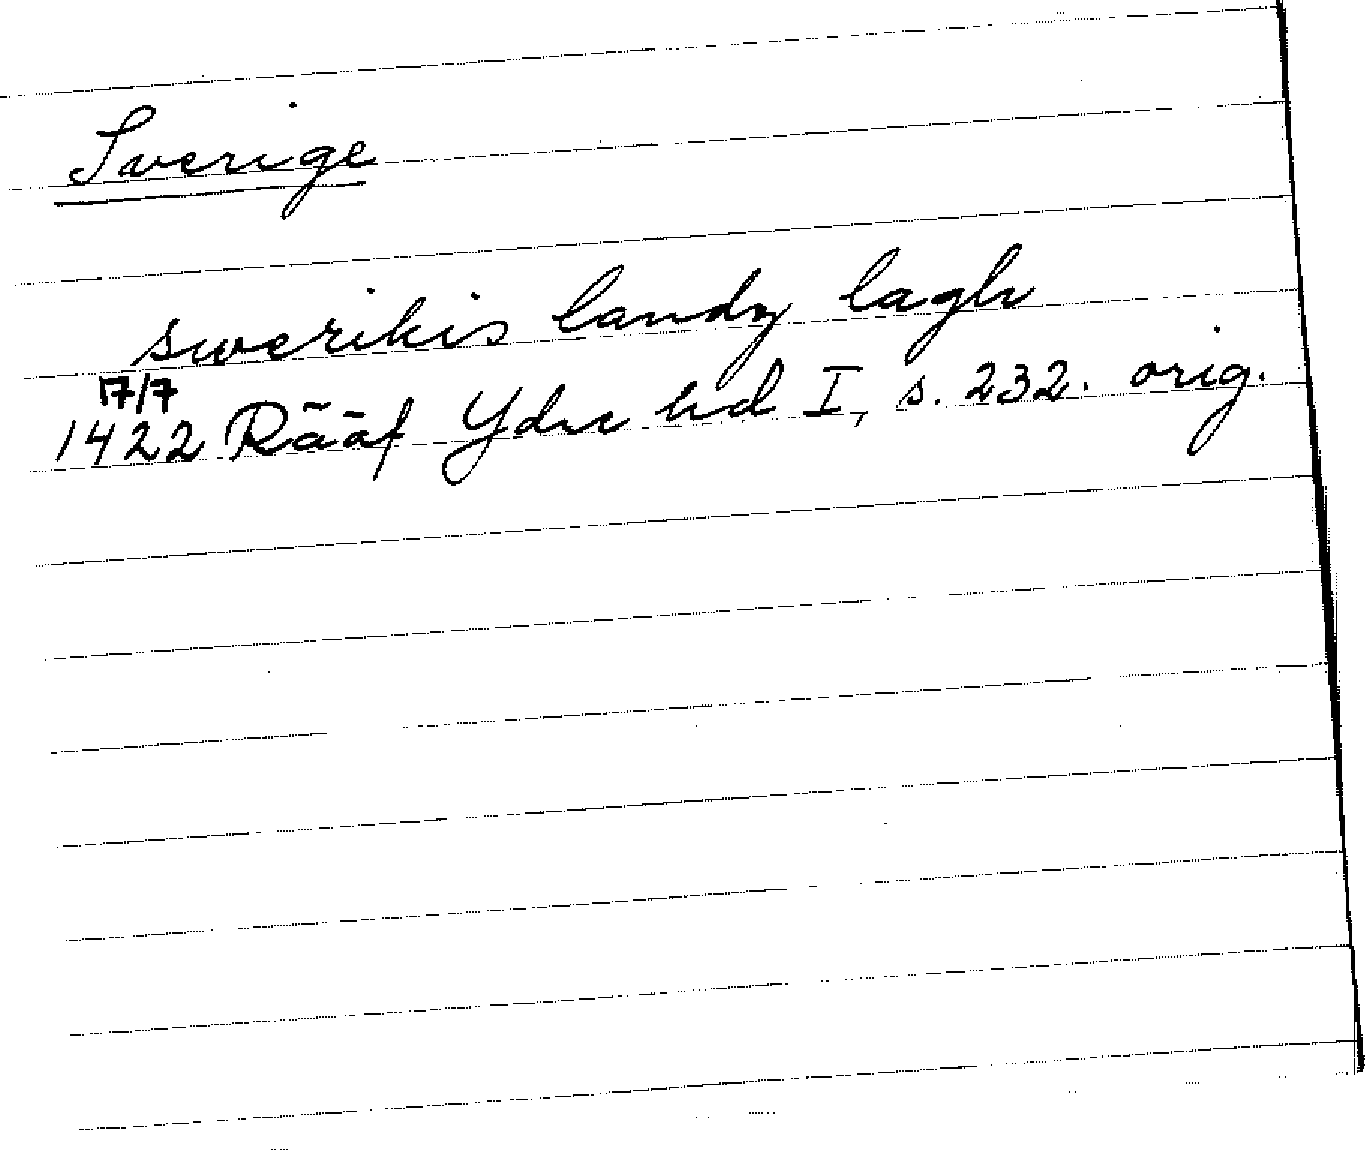 Sverige
swerikis landz lagh
17/7
1422 Rääf Ydre hd I, s. 232. orig.